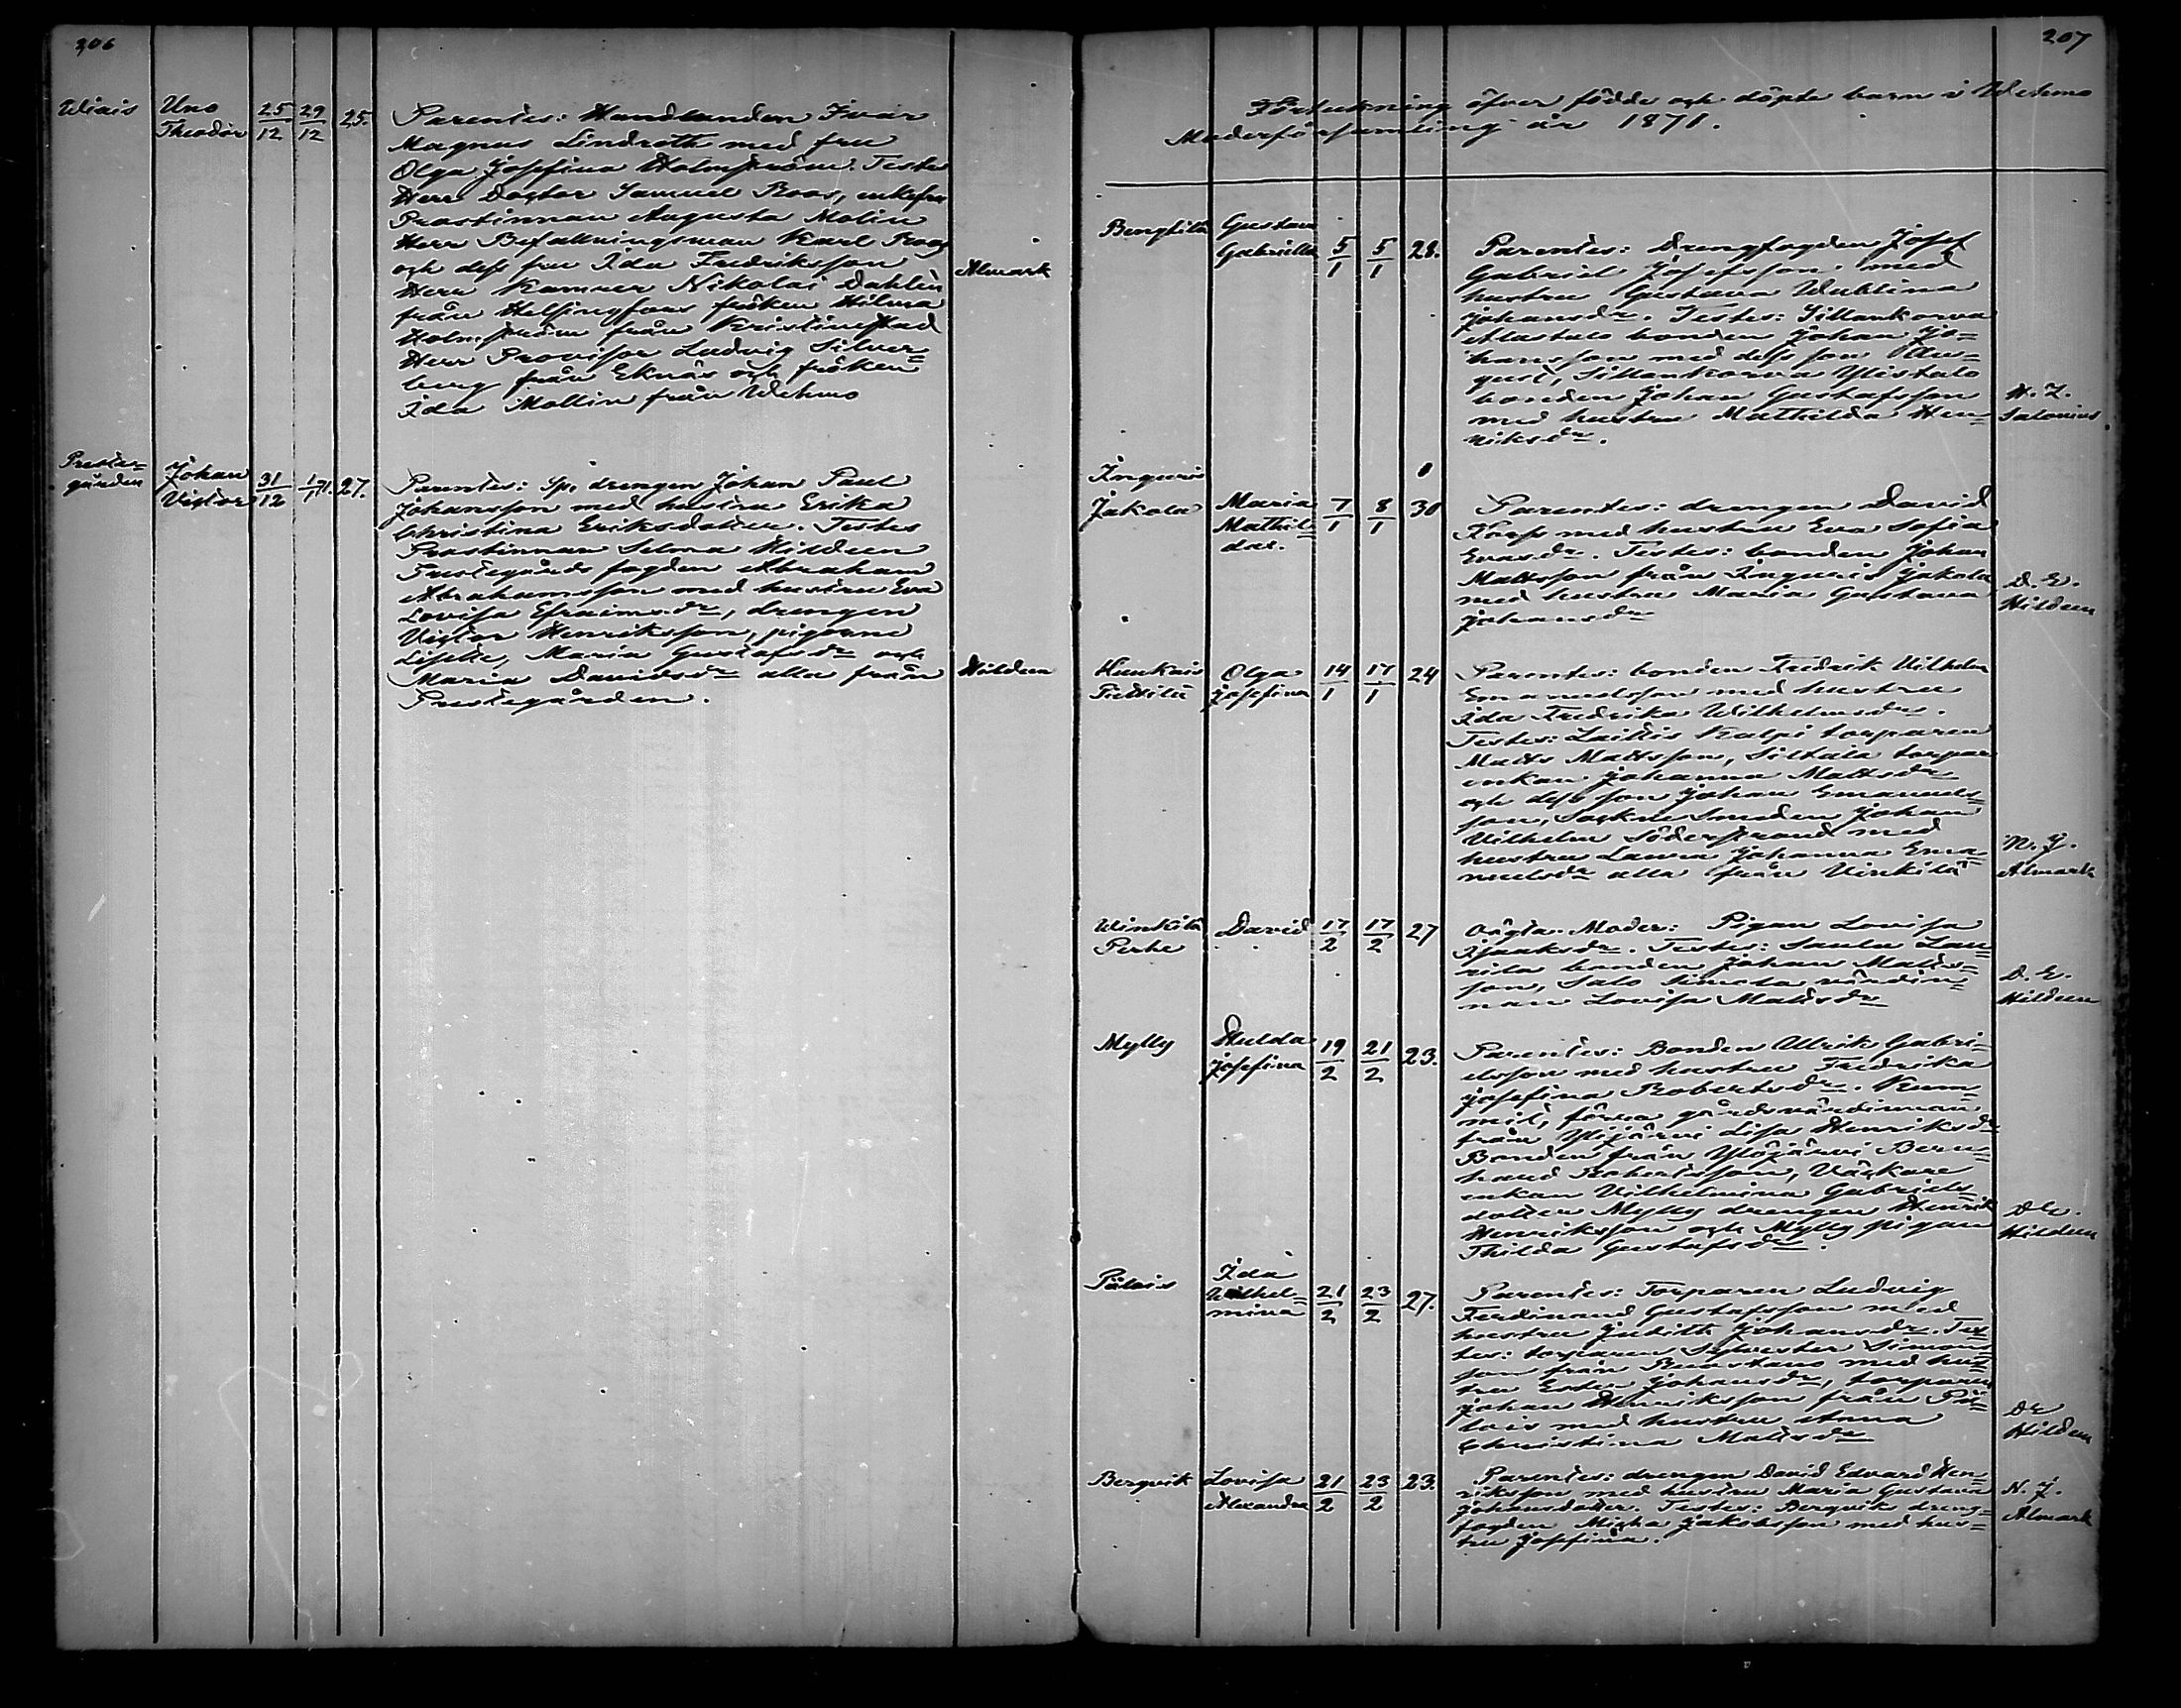 206
Wiais Uno 25/12 29/12 25. Parentes: Handlanden Ivar
Theodor Magnus Lindroth med fru
Olga Josefina Holmström. Testes
Herr Doctor Samuel Roos, enkefru
Prostinnan Augusta Molin
Herr Befallningsman Karl Roos
och dess fru Ida Fredriksson
Herr Kamrer Nikolai Dahlin Almark
från Helsingfors fröken Hilma
Holmström från Kristinestad
Herr Provisor Ludvig Silfver=
berg från Eknäs och fröken
Ida Mollin från Wehmo
Preste= Johan 31/12 1/1 71. 27. Parentes: Sp. drengen Johan Paul
gården Victor Johansson med hustru Erika
Christina Eriksdotter. Testes
Prostinnan Selma Hildeen
Prestegårds fogden Abraham
Abrahamsson med hustru Eva
Lovisa Efraimsdr, drengen
Victor Henriksson, pigorna
Lisette, Maria Gustafsdr och
Maria Davidsdr alla från Hildeen
Prestegården.
207
Förteckning öfver födde och döpte barn i Wehmo
Moderförsamling år 1871.
Bengtilä Gustava
Gabriella 5/1 5/1 28. Parentes: Drengfogden Josef
Gabriel Josefsson med
hustru Gustava Wublina
Johansdr. Testes: Sillankorva
Alastalo bonden Johan Jo=
hansson med dess son Au=
gust, Sillankorva Ylistalo
bonden Johan Gustafsson H. Z.
med hustru Mathilda Hen= Salonius
riksdr.
Inguris
Jakola Maria 7/1 8/1 30 Parentes: drengen David
Mathil= Korp med hustru Eva Sofia
da. Evasdr. Testes: bonden Johan
Mattsson från Inguris Jakola D. E.
med hustru Maria Gustava Hildeen
Johansdr
Huukais Olga 14/1 17/1 24 Parentes: bonden Fredrik Vilhelm
Tiettilä Josefina Emanuelsson med hustru
Ida Fredrika Wilhelmsdr.
Testes: Laittis Kulpi torparen
Matts Mattsson, Siltala torpar
enkan Johanna Mattsdr
och dess son Johan Emanuels=
son, Sockne Smeden Johan
Vilhelm Söderstrand med N. J.
hustru Laura Johanna Ema=
nuelsdr alla från Vinkilä Almark
Winkilä David 17/2 17/2 27 Oägta. Moder: Pigan Lovisa
Perhe Isaaksdr. Testes: Saula Lau=
rila bonden Johan Matts= D. E.
son, Salo Simola värdin=
nan Lovisa Mattsdr Hildeen
Mylly Hulda 19/2 21/2 23. Parentes: Bonden Ulrik Gabri=
Josefina elsson med hustru Fredrika
Josefina Robertsdr. Kum=
mit, förra gårdsvärdinnan
från Ylijärvi Lisa Henriksdr
Bonden från Ylöjärvi Bern=
hard Robertsson, Väckare
enkan Vilhelmina Gabriels=
dotter Mylly drengen Henrik DE.
Henriksson och Mylly pigan Hildeen
Thilda Gustafsdr.
Pälais Ida
Wilhel= 21/2 23/2 27. Parentes: Torparen Ludvig
mina Ferdinand Gustafsson med
hustru Judith Johansdr. Tes
tes: torparen Sylvester Simons
son från Puostano med hus
tru Ester Johansdr, torparen
Johan Henriksson från Pä=
lais med hustru Anna DE
Christina Mattsdr Hildeen
Bergvik Lovisa 21/2 23/2 23. Parentes: drengen David Edvard Hen=
Alexandra riksson med hustru Maria Gustava N. J.
Johansdotter. Testes: Bergvik dreng=
fogden Micha Jakobsson med hus= Almark
tru Josefina.